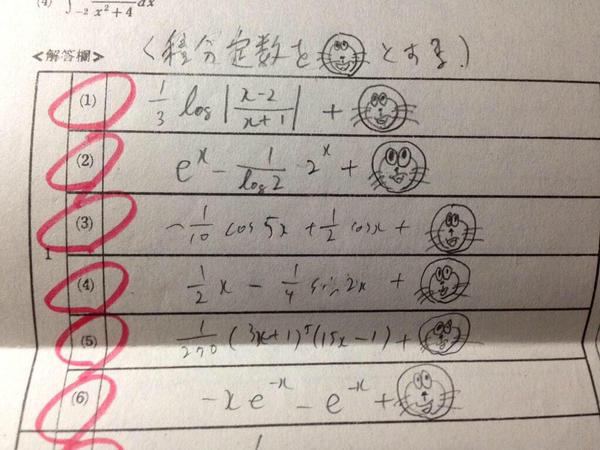 (4) ∫₋₂ x²+4 dx
<解答欄> (積分定数を とする.)
(1) 1/3 log |x-2/x+1| +
(2) eˣ - 1/log2 · 2ˣ +
(3) -1/10 cos 5x + 1/2 cosx +
1
(4) 1/2 x - 1/4 sin 2x +
(5) 1/270 (3x+1)⁵(15x-1) +
(6) -xe⁻ˣ - e⁻ˣ +